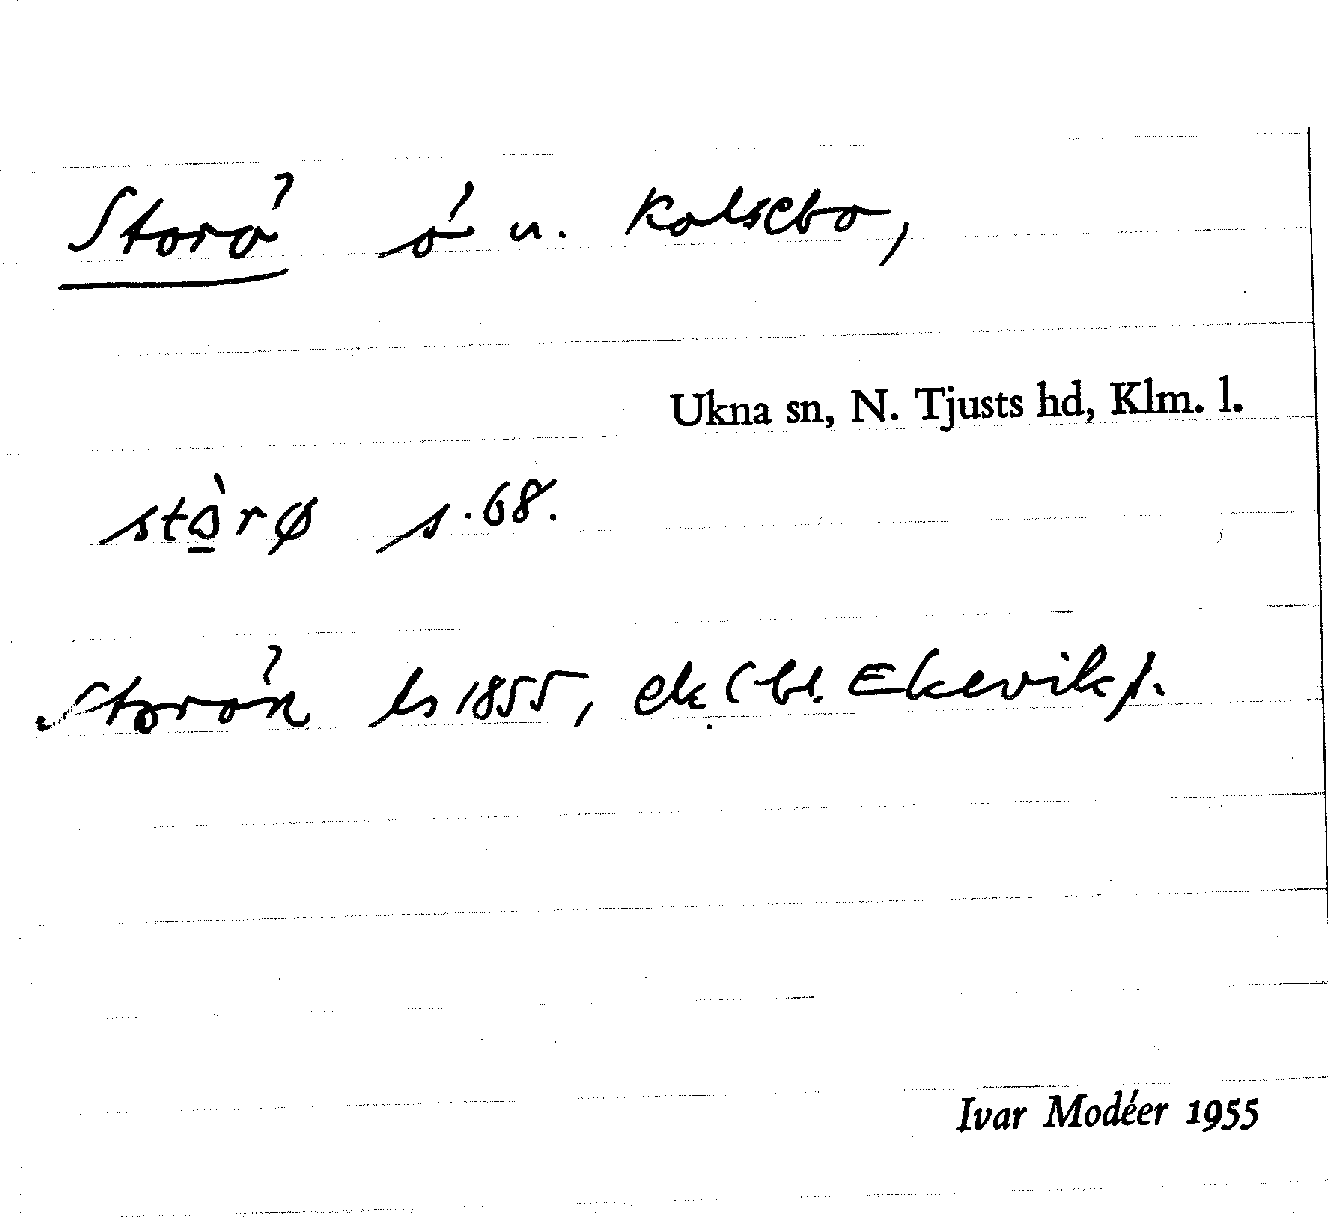 Storö ö u. Kolsebo,
Ukna sn, N. Tjusts hd, Klm. l.
stòrø s. 68.
Storön ls 1855, ek (bl. Ekevik).
Ivar Modéer 1955